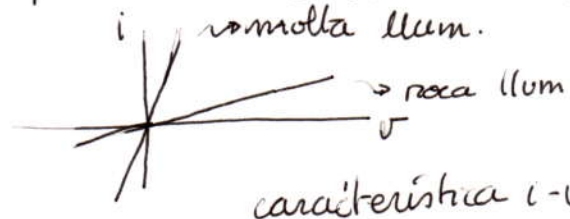 i → molta llum.
→ poca llum
v
característica i-v